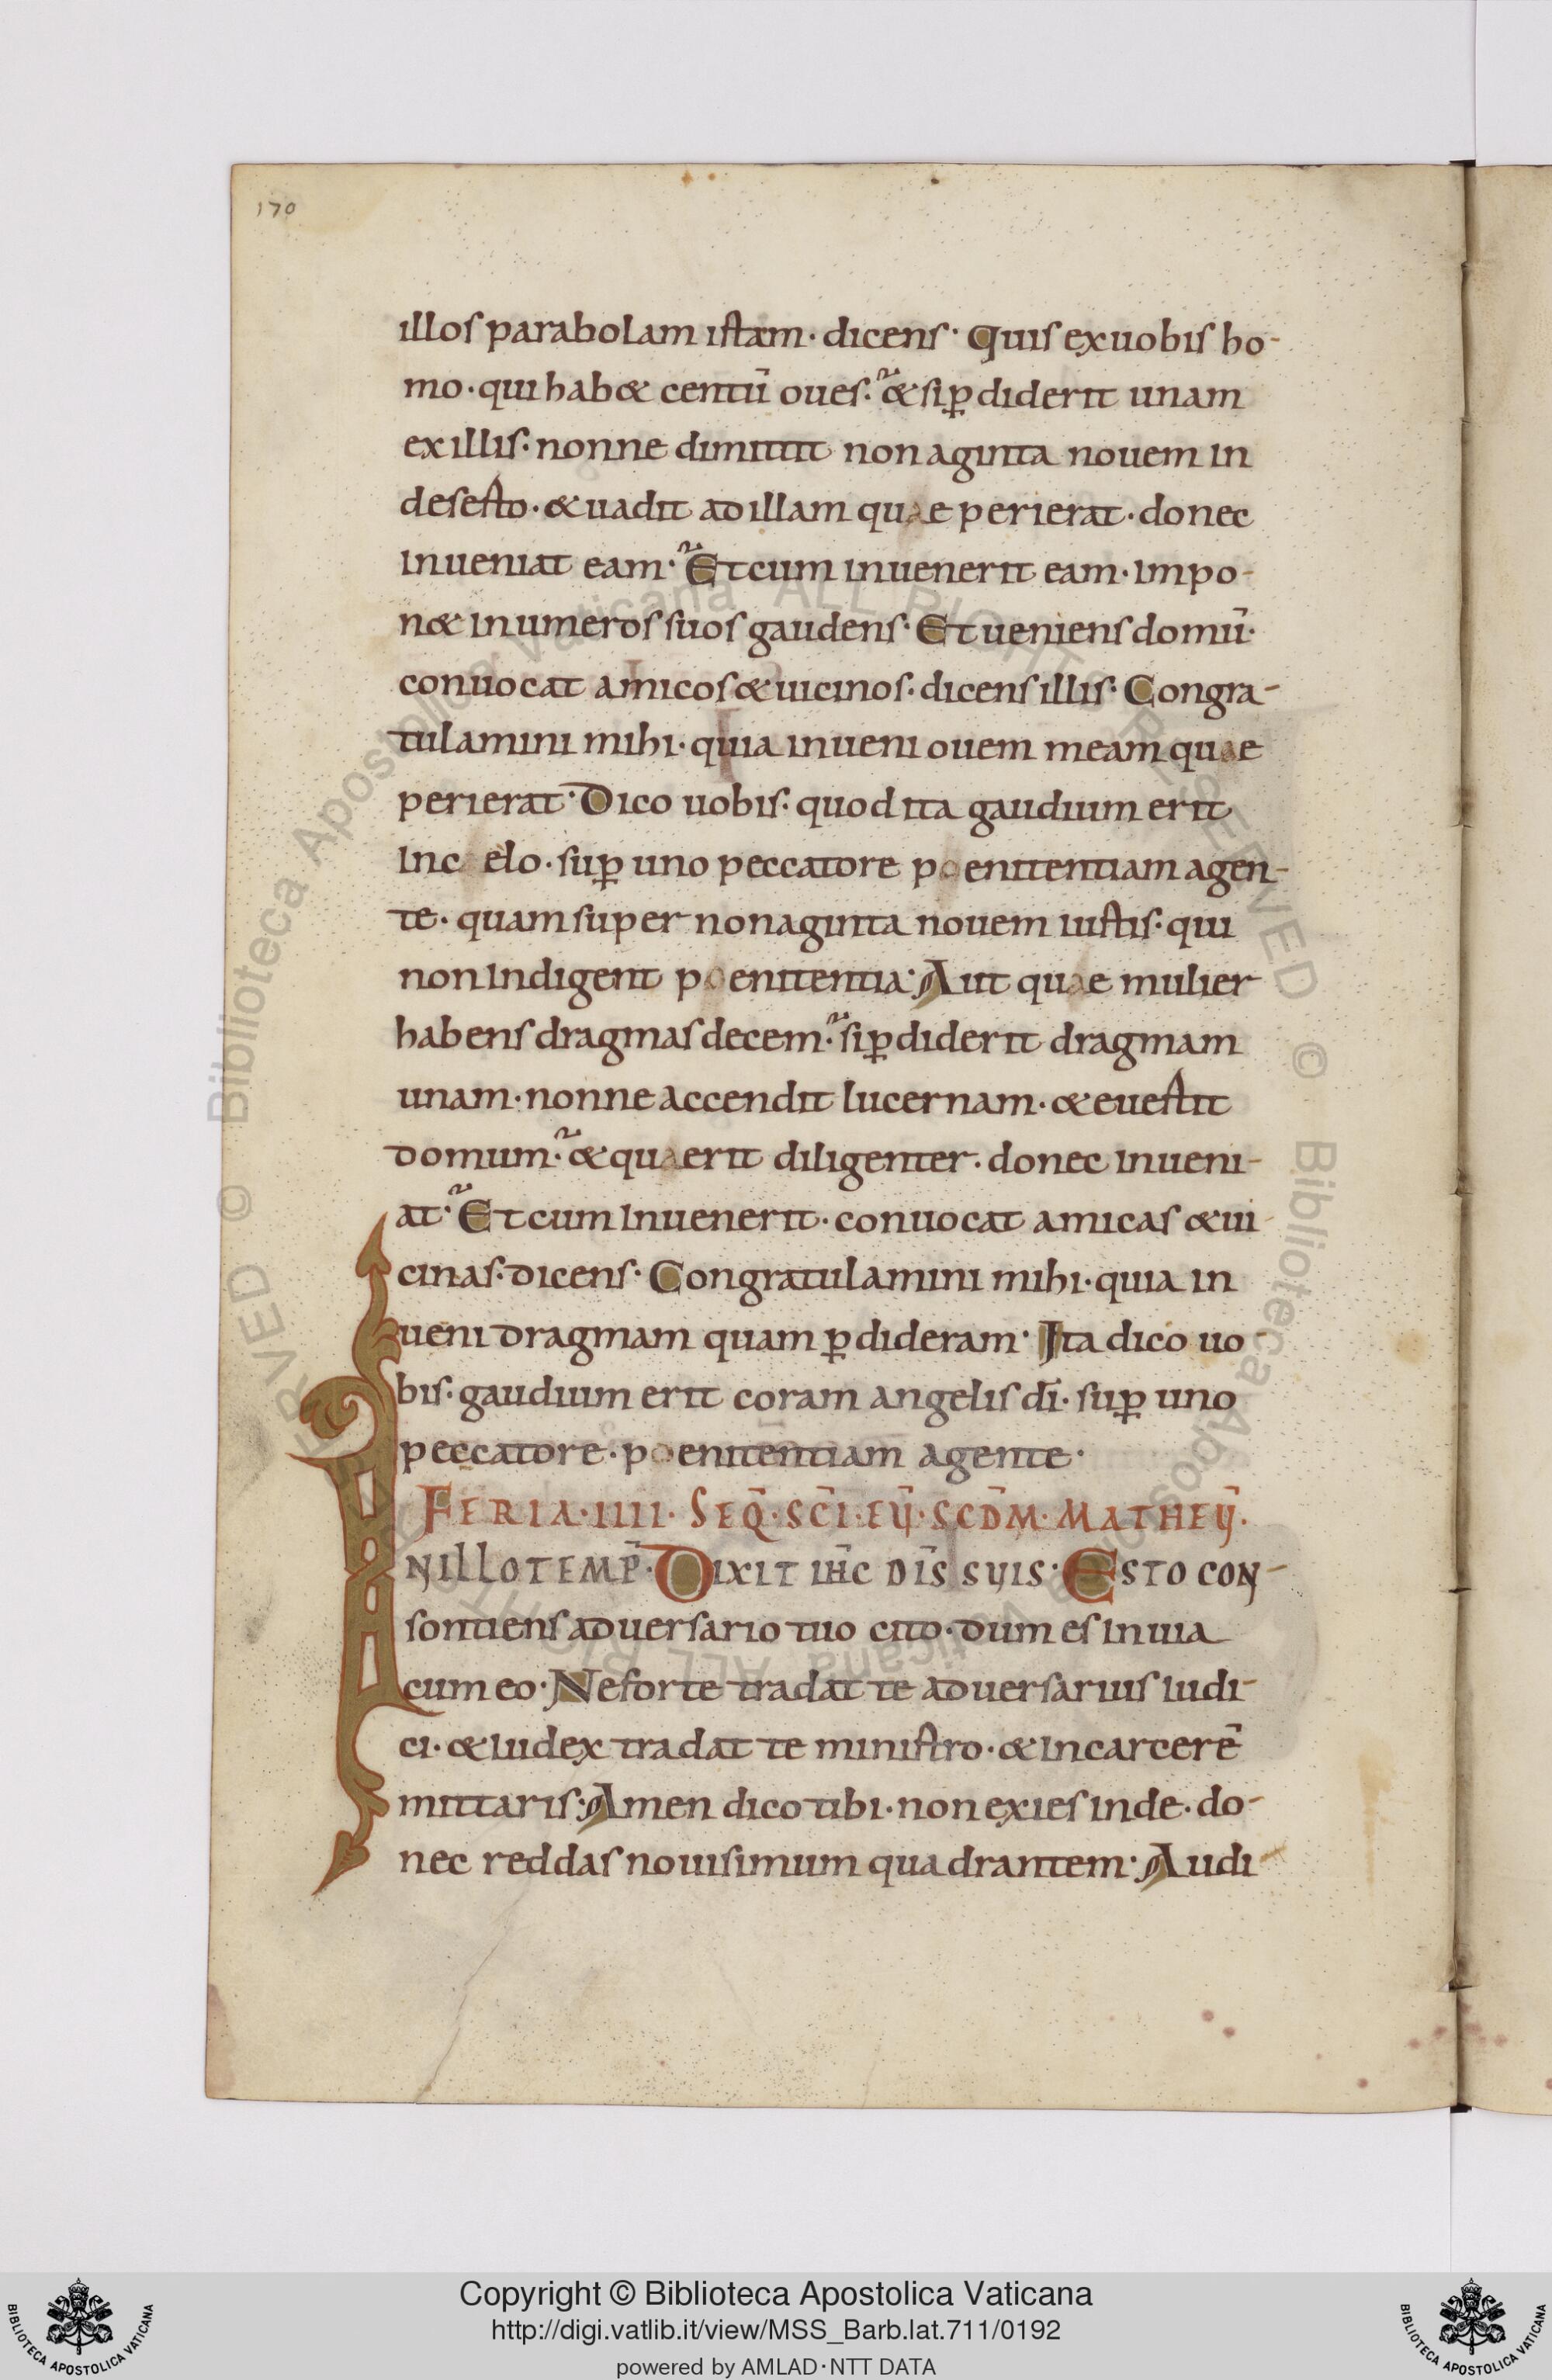 170
illos parabolam istam· dicens· Quis ex uobis ho-
mo· qui hab& centū oues· & si ꝑdiderit unam
ex illis· nonne dimittit nonaginta nouem in
deserto· & uadit ad illam quae perierat· donec
inueniat eam· Et cum inuenerit eam· impo-
n& in umeros suos gaudens· Et ueniens domū·
conuocat amicos & uicinos· dicens illis· Congra-
tulamini mihi· quia inueni ouem meam quae
perierat· Dico uobis· quod ita gaudium erit
in c elo· suꝑ uno peccatore poenitentiam agen-
te· quam super nonaginta nouem iustis· qui
non indigent poenitentia· Aut quae mulier
habens dragmas decem· si ꝑdiderit dragmam
unam· nonne accendit lucernam· & euertit
domum· & quaerit diligenter· donec inueni-
at· Et cum inuenerit· conuocat amicas & ui-
cinas· dicens· Congratulamini mihi· quia in
ueni dragmam quam ꝑdideram· Ita dico uo-
bis· gaudium erit coram angelis dī· suꝑ uno
peccatore· poenitentiam agente·
FERIA· IIII· SEQ̄· SC̄I· EŪ· SCD̄M· MATHEŪ·
IN ILLO TEMP̄· DIXIT IH̄C DIS̄ SUIS· ESTO CON-
sentiens aduersario tuo cito· dum es in uia
cum eo· Ne forte tradat te aduersarius iudi-
ci· & iudex tradat te ministro· & in carcerē
mittaris· Amen dico tibi· non exies inde· do-
nec reddas nouisimum quadrantem· Audi-
Copyright © Biblioteca Apostolica Vaticana
http://digi.vatlib.it/view/MSS_Barb.lat.711/0192
powered by AMLAD·NTT DATA
BIBLIOTECA APOSTOLICA VATICANA
BIBLIOTECA APOSTOLICA VATICANA